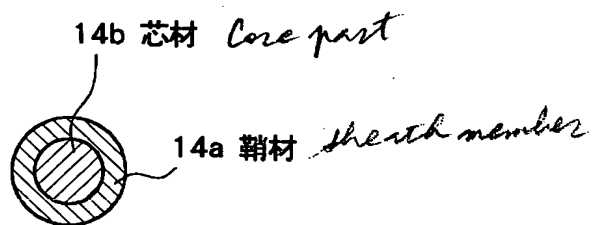 14b 芯材 Core part
14a 鞘材 sheath member